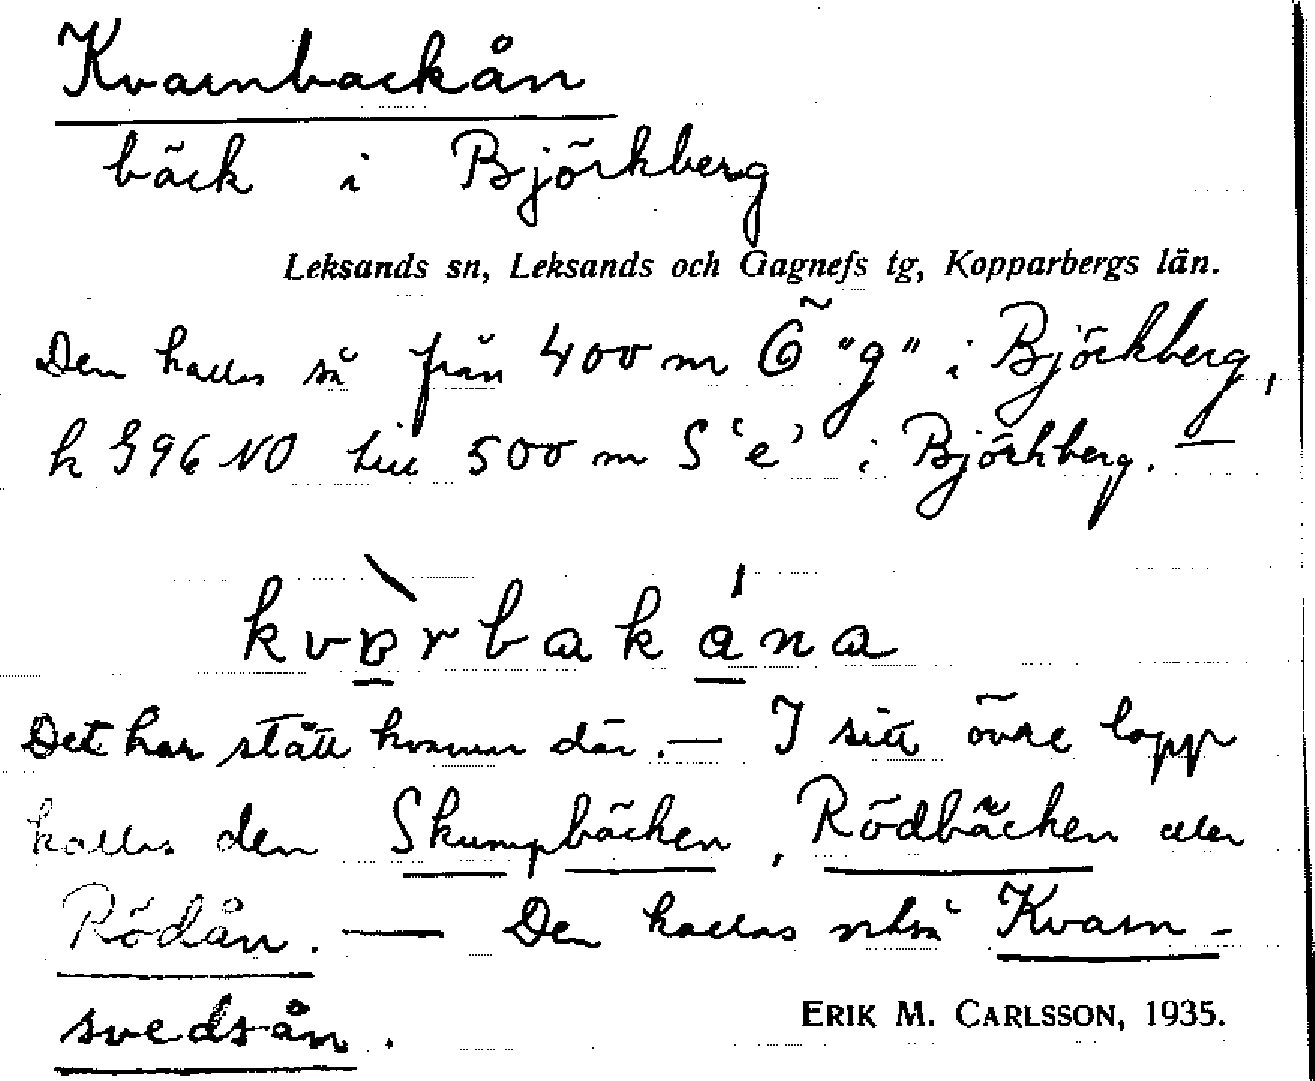 Kvarnbackån
bäck i Björkberg
Leksands sn, Leksands och Gagnefs tg, Kopparbergs län.
Den kallas så från 400 m Ö "g" i Björkberg,
k 396 NO till 500 m S 'e' i Björkberg. —
kvɒ̀rbakána
Det har stått kvarnar där. — I sitt övre lopp
kallas den Skumpbäcken, Rödbäcken eller
Rödån. — Den kallas också Kvarn-
svedsån.
ERIK M. CARLSSON, 1935.